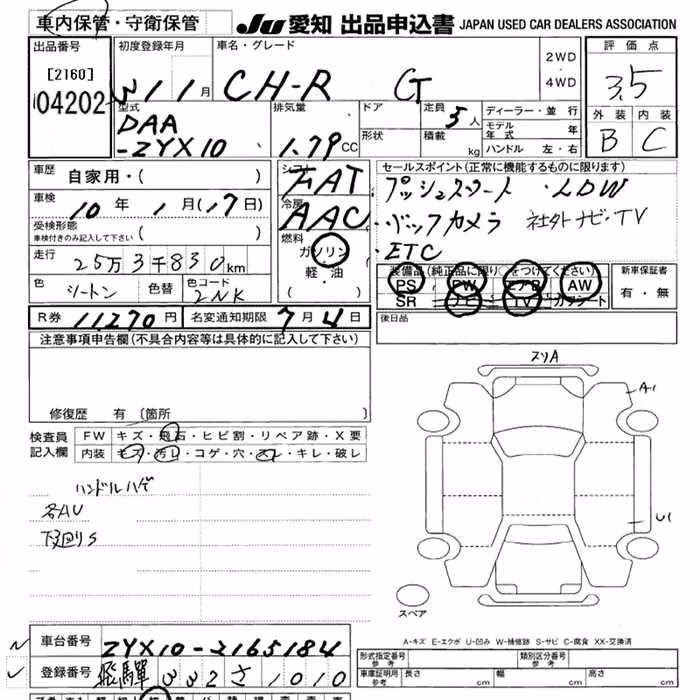 車内保管・守衛保管
JU 愛知 出品申込書 JAPAN USED CAR DEALERS ASSOCIATION
出品番号
[2160]
04202
初度登録年月
31 1月
車名・グレード
CH-R G
2WD
・
4WD
評価点
3.5
外装 内装
B C
型式
DAA
-ZYX10
排気量
1.79 CC
ドア
形状
定員 5 人
積載 kg
ディーラー・並行
モデル年式 年
ハンドル 左・右
車歴 自家用・( )
車検 10年 1月(17日)
受検形態
車検付きのみ記入して下さい ( )
走行 25万3千830km
色 ツートン 色替 色コード 2NK
シフト FAT
冷房 AAC
燃料
ガソリン
・
軽・油
( )
セールスポイント(正常に機能するものに限ります)
・プッシュスタート ・LDW
・バックカメラ 社外ナビ・TV
・ETC
装備品(純正品に限り○をつけてください)
PS PW エアB AW
SR ナビ TV カワシート
新車保証書
有・無
後日品
R券 11270円 名変通知期限 7月4日
注意事項申告欄(不具合内容等は具体的に記入して下さい)
修復歴 有〔箇所 〕
検査員
記入欄
FW キズ・飛石・ヒビ割・リペア跡・X要
内装 キズ・汚レ・コゲ・穴・スレ・キレ・破レ
ハンドルハゲ
各AU
下回りS
スリA
A1
U1
スペア
A-キズ E-エクボ U-凹み W-補修跡 S-サビ C-腐食 XX-交換済
車台番号 ZYX10-2165184
登録番号 飛騨 332 さ 1010
形式指定番号 参考
類別区分番号 参考
車庫証明用 参考 長さ cm 幅 cm 高さ cm